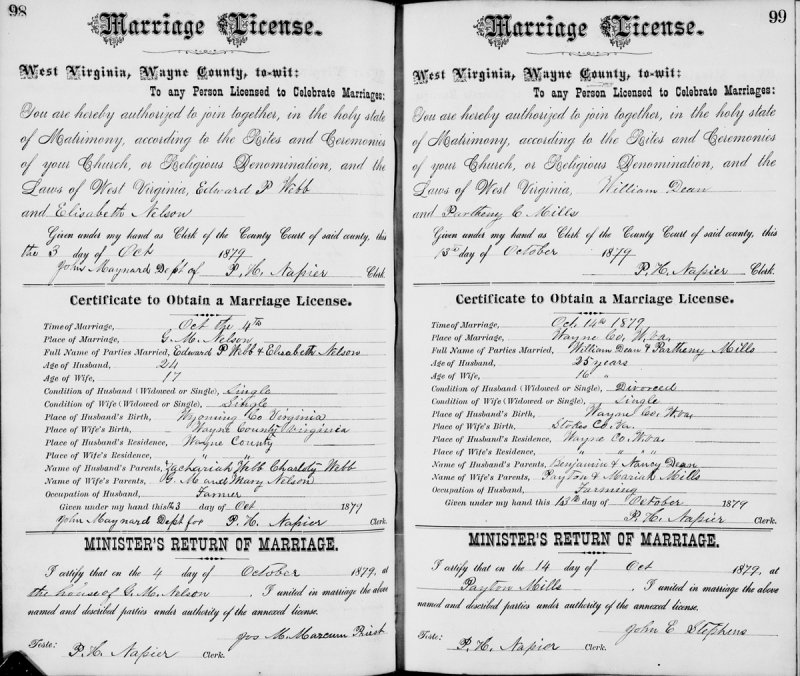 98
Marriage License.
West Virginia, Wayne County, to-wit:
To any Person Licensed to Celebrate Marriages:
You are hereby authorized to join together, in the holy state
of Matrimony, according to the Rites and Ceremonies
of your Church, or Religious Denomination, and the
Laws of West Virginia, Edward P Webb
and Elisabeth Nelson
Given under my hand as Clerk of the County Court of said county, this
the 3 day of Oct 1879
John Maynard Dept of P. H. Napier Clerk.
Certificate to Obtain a Marriage License.
Time of Marriage, Oct the 4th
Place of Marriage, G. M. Nelson
Full Name of Parties Married, Edward P Webb & Elisabeth Nelson
Age of Husband, 24
Age of Wife, 17
Condition of Husband (Widowed or Single), Single
Condition of Wife (Widowed or Single), Single
Place of Husband's Birth, Wyoming Co Virginia
Place of Wife's Birth, Wayne County Virginia
Place of Husband's Residence, Wayne County
Place of Wife's Residence, "
Name of Husband's Parents, Zachariah Webb Charloty Webb
Name of Wife's Parents, G. M and Mary Nelson
Occupation of Husband, Farmer
Given under my hand this the 3 day of Oct 1879
John Maynard Dept for P. H. Napier Clerk.
MINISTER'S RETURN OF MARRIAGE.
I certify that on the 4 day of October 1879, at
the house of G. M. Nelson, I united in marriage the above
named and described parties under authority of the annexed license.
Jos M. Marcum Priest
Teste:
P. H. Napier Clerk.
99
Marriage License.
West Virginia, Wayne County, to-wit:
To any Person Licensed to Celebrate Marriages:
You are hereby authorized to join together, in the holy state
of Matrimony, according to the Rites and Ceremonies
of your Church, or Religious Denomination, and the
Laws of West Virginia, William Dean
and Partheny C Mills
Given under my hand as Clerk of the County Court of said county, this
13th day of October 1879
P. H. Napier Clerk.
Certificate to Obtain a Marriage License.
Time of Marriage, Oct. 14th 1879
Place of Marriage, Wayne Co, W.va,
Full Name of Parties Married, William Dean & Partheny Mills
Age of Husband, 25 years
Age of Wife, 16 "
Condition of Husband (Widowed or Single), Divorced
Condition of Wife (Widowed or Single), Single
Place of Husband's Birth, Wayne Co, W.va,
Place of Wife's Birth, Stokes Co. Va.
Place of Husband's Residence, Wayne Co. W.va
Place of Wife's Residence, " " " "
Name of Husband's Parents, Benjamin & Nancy Dean
Name of Wife's Parents, Payton & Mariah Mills
Occupation of Husband, Farming
Given under my hand this 13th day of October 1879
P. H. Napier Clerk.
MINISTER'S RETURN OF MARRIAGE.
I certify that on the 14 day of Oct 1879, at
Payton Mills, I united in marriage the above
named and described parties under authority of the annexed license.
John E Stephens
Teste:
P. H. Napier Clerk.